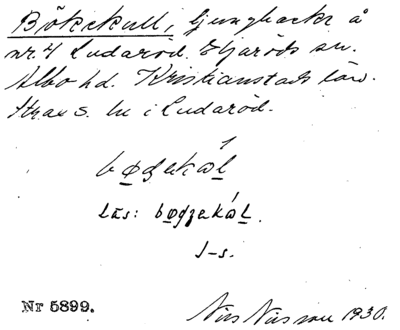 Bökekull, ljungbacke å
nr. 4 Ludaröd. Eljaröds sn.
Albo hd. Kristianstads län.
Strax s. in i Ludaröd.
bøgekal
läs: bøgzekal.
J-s.
Nr 5899.
Nils Nilsson 1930.